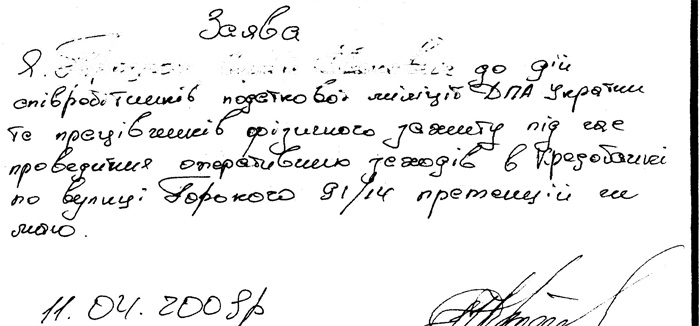 Заява
Я, до дій
співробітників податкової міліції ДПА України
та працівників фізичного захисту під час
проведення оперативних заходів в Градобанкі
по вулиці Горького 91/14 претензій не
маю.
11.04.2008р